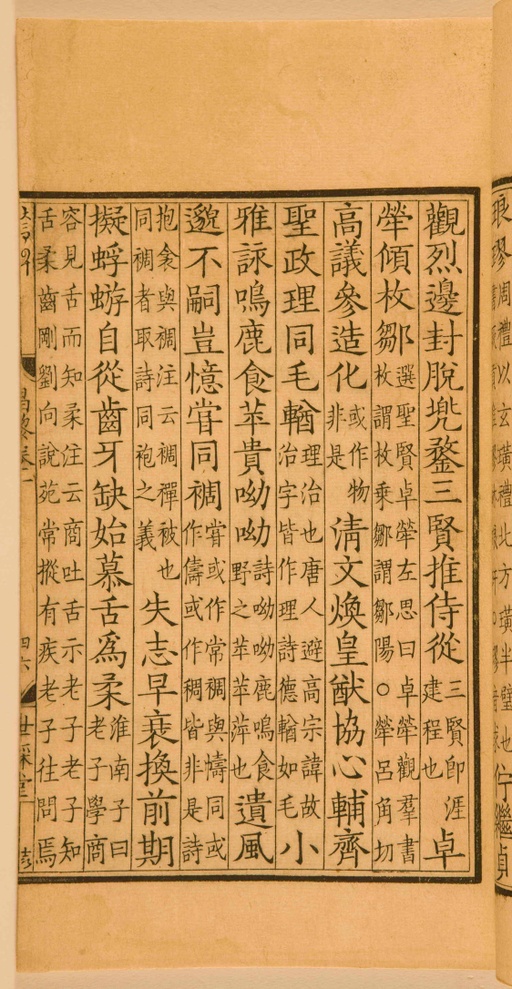 周禮以玄璜禮北方璜半璧也佇繼貞
觀烈邊封脫兠鍪三賢推侍從三賢即涯建程也卓
犖傾枚鄒選聖賢卓犖左思曰卓犖觀羣書枚謂枚乗鄒謂鄒陽○犖呂角切
高議參造化或作物非是清文煥皇猷協心輔齊
聖政理同毛輶理治也唐人避高宗諱故治字皆作理詩德輶如毛小
雅詠鳴鹿食苹貴呦呦詩呦呦鹿鳴食野之苹苹萍也遺風
邈不嗣豈憶甞同裯甞或作常裯與幬同或作儔或作稠皆非是詩
抱衾與裯注云裯襌被也同裯者取詩同袍之義失志早衰換前期
擬蜉蝣自從齒牙缺始慕舌爲柔淮南子曰老子學商
容見舌而知柔注云商吐舌示老子老子知舌柔齒剛劉向說苑常摐有疾老子往問焉